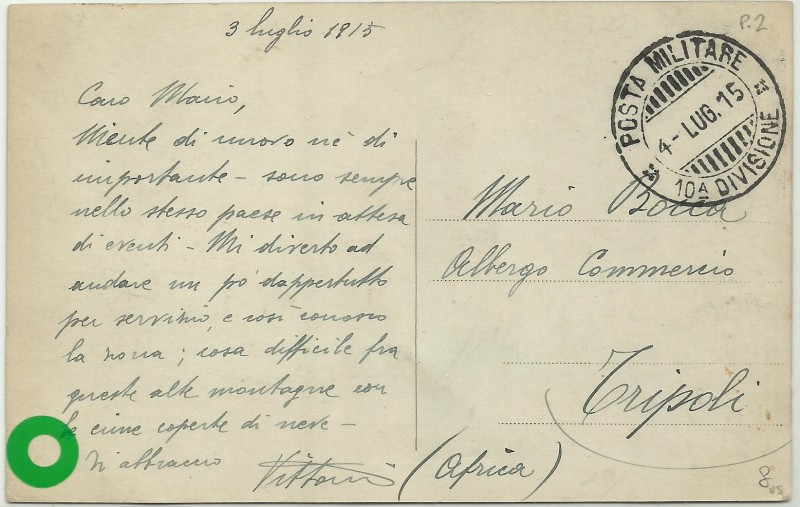 3 luglio 1915
P.2
Caro Mario,
Niente di nuovo nè di
importante - sono sempre
nello stesso paese in attesa
di eventi - Mi diverto ad
andare un pò dappertutto
per servizio, e così conosco
la zona; cosa difficile fra
queste alte montagne con
le cime coperte di neve -
Ti abbraccio
Vittorio
POSTA MILITARE
4 - LUG. 15
10A DIVISIONE
Mario Bocca
Albergo Commercio
Tripoli
(Africa)
8